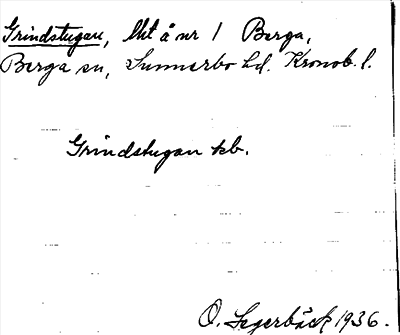 Grindstugan, lht å nr 1 Berga,
Berga sn, Sunnerbo hd. Kronob. l.
Grindstugan kb.
O. Segerbäck 1936.